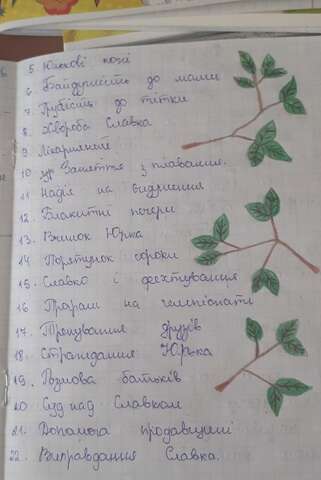 5 Юнкові мозі
6 Байдужість до мами
7. Грубість до тітки
8. Хвороба Славка
9. Лікарняної
10 ур Заняття з плавання.
11 Надія на видужання
12. Блакитні печери
13. Вчинок Юрка
14. Порятунок сороки
15. Славко і фехтування
16 Програш на чемпіонаті
17. Тренування друзів
18. Страждання Юрька
19. Розмова батьків
20 Суд над Славком
21. Допомога продавщині
22. Виправдання Славка.